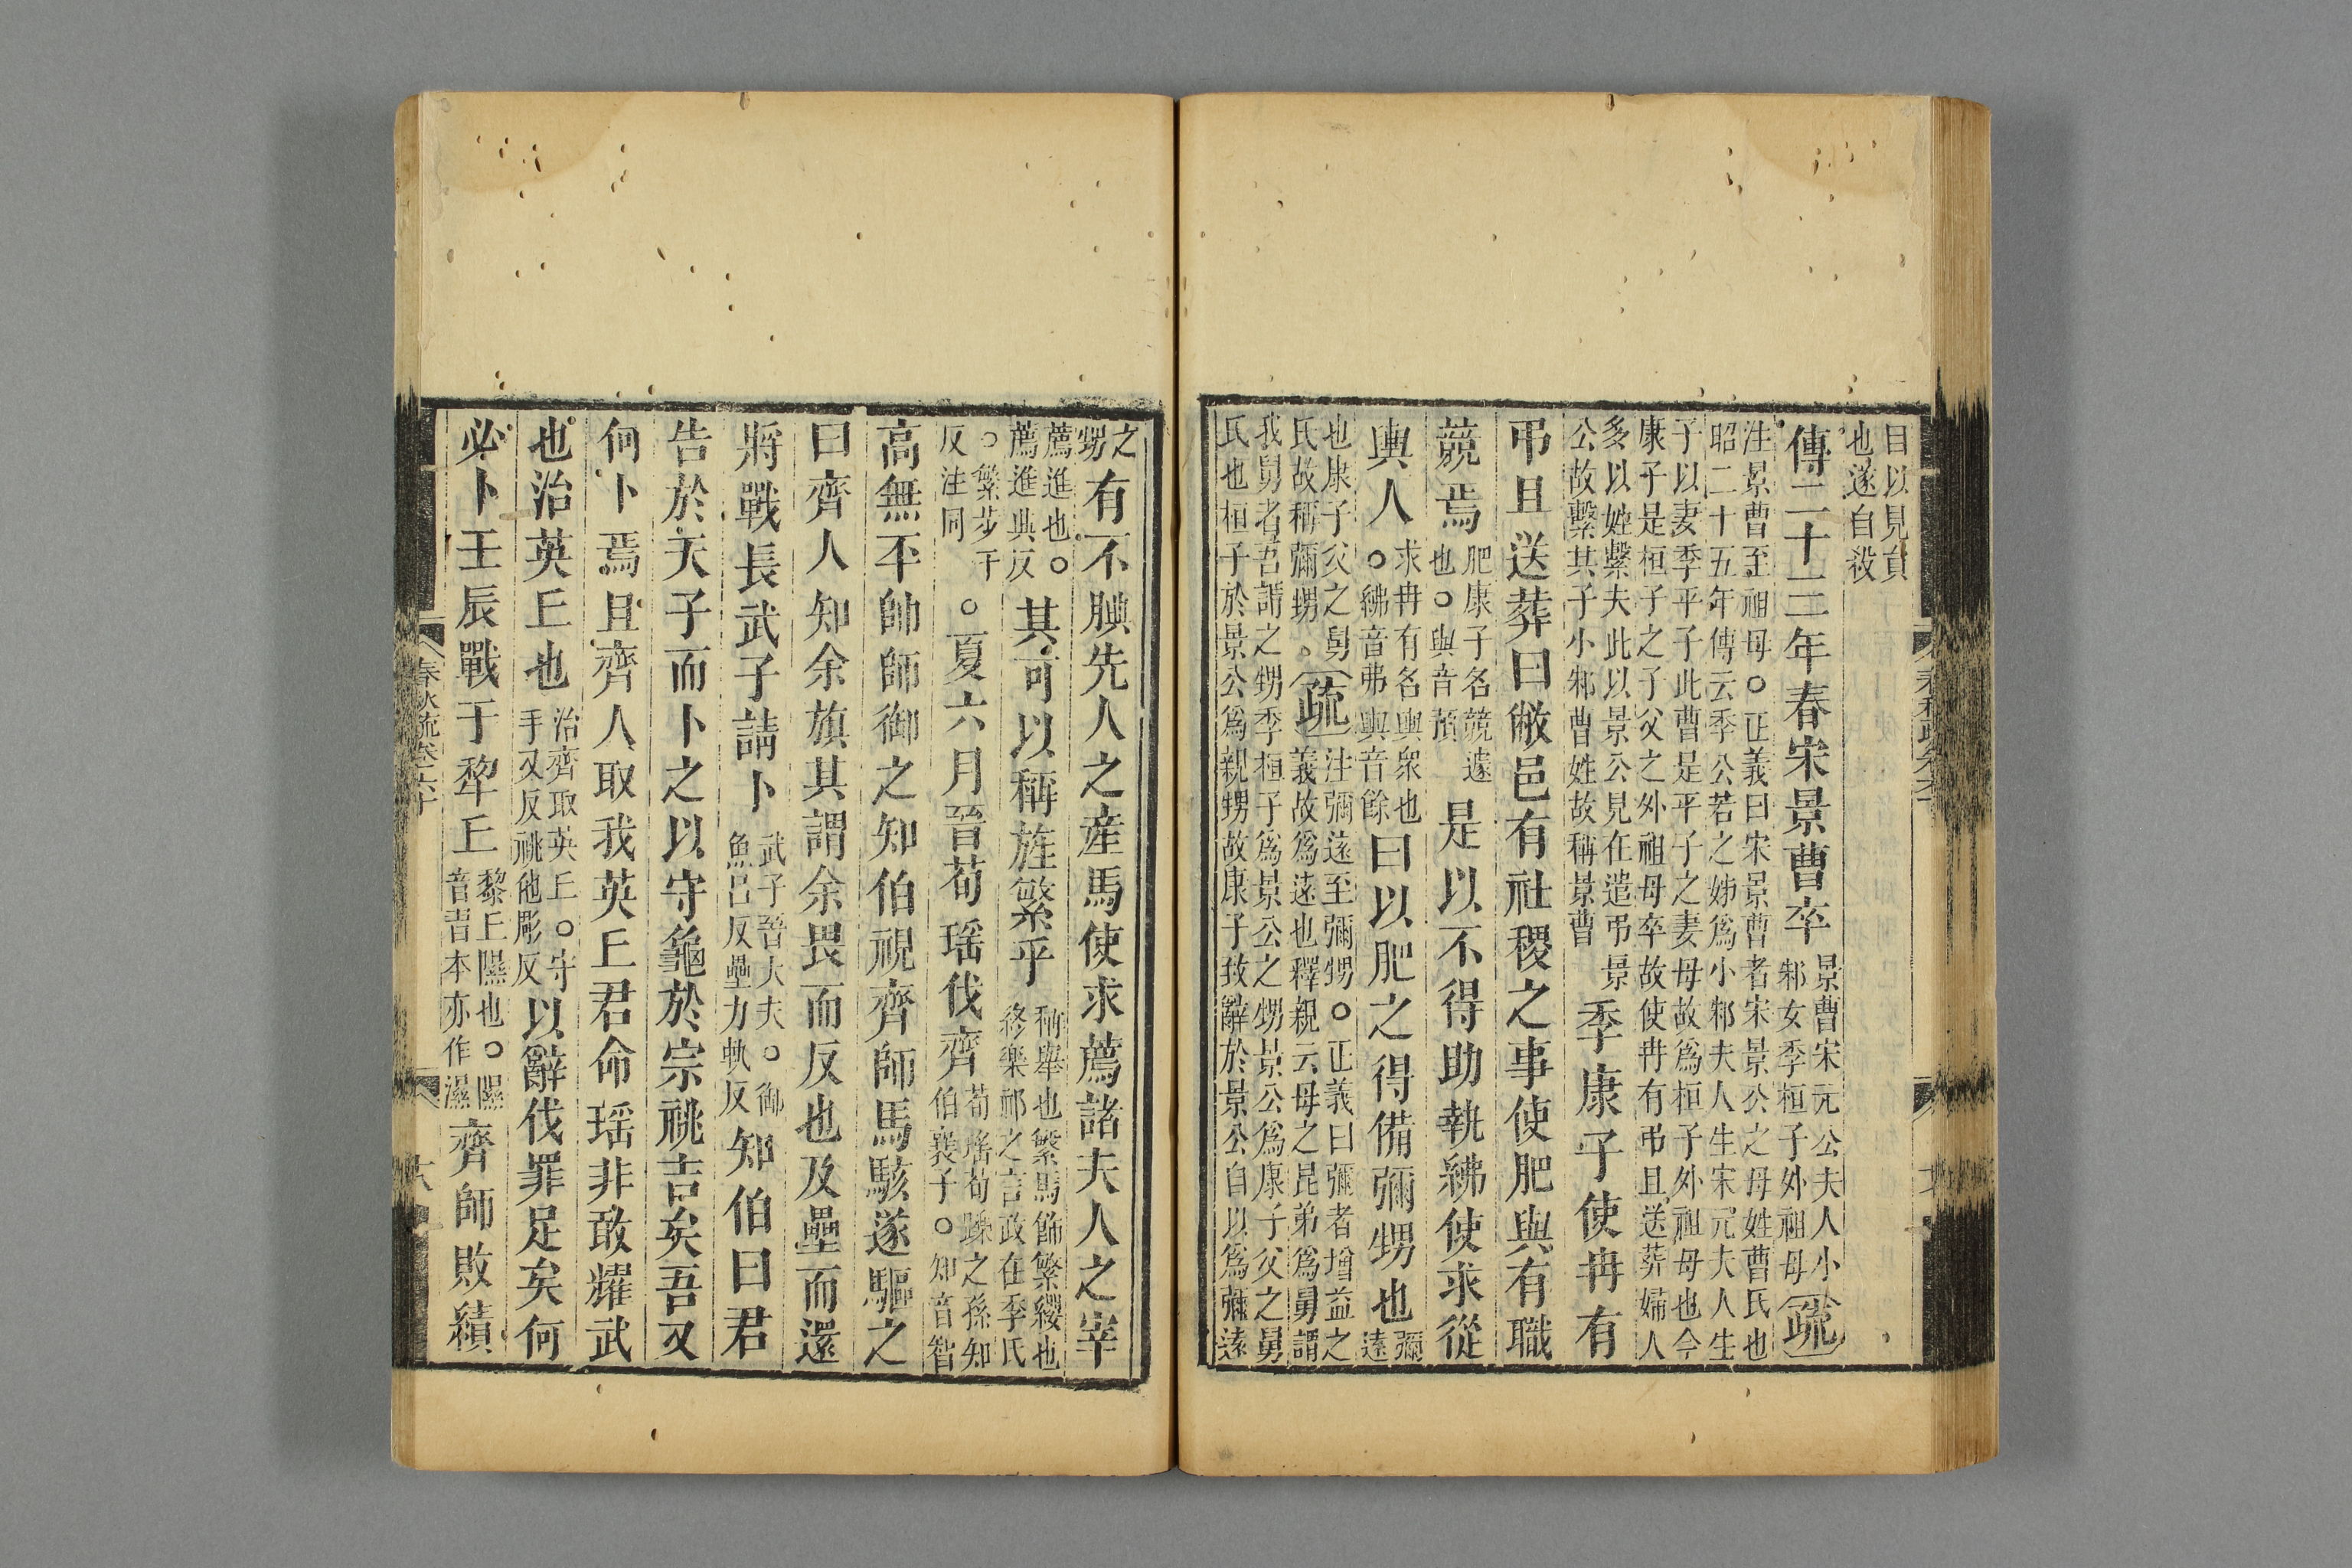 目以見貞
也遂自殺
傳二十三年春宋景曹卒
景曹宋元公夫人小
邾女季桓子外祖母
疏
注景曹至祖母○正義曰宋景曹者宋景公之母姓曹氏也
昭二十五年傳云季公若之姊爲小邾夫人生宋元夫人生
子以妻季平子此曹是平子之妻母故爲桓子外祖母也今
康子是桓子之子父之外祖母卒故使冉有弔且送葬婦人
多以姓繫夫此以景公見在遣弔景
公故繫其子小邾曹姓故稱景曹
季康子使冉有
弔且送葬曰敝邑有社稷之事使肥與有職
競焉
肥康子名競遽
也○與音預
是以不得助執紼使求從
輿人
求冉有名輿衆也
○紼音弗輿音餘
曰以肥之得備彌甥也
彌
遠
也康子父之舅
氏故稱彌甥。
疏
注彌遠至彌甥○正義曰彌者增益之
義故爲遠也釋親云母之昆弟爲舅謂
我舅者吾謂之甥季桓子爲景公之甥景公爲康子父之舅
氏也桓子於景公爲親甥故康子致辭於景公自以爲彌遠
之
甥
有不腆先人之產馬使求薦諸夫人之宰
薦進也○
薦進典反
其可以稱旌繁乎
稱舉也繁馬飾繁纓也
終樂祁之言政在季氏
○繁步干
反注同
○夏六月晉荀瑶伐齊
荀瑤荀躒之孫知
伯襄子○知音智
高無㔻帥師御之知伯視齊師馬駭遂驅之
曰齊人知余旗其謂余畏而反也及壘而還
將戰長武子請卜
武子晉大夫○御
魚呂反壘力軌反
知伯曰君
告於天子而卜之以守龜於宗祧吉矣吾又
何卜焉且齊人取我英丘君命瑶非敢耀武
也治英丘也
治齊取英丘○守
手又反祧他彫反
以辭伐罪足矣何
必卜壬辰戰于犂丘
黎丘隰也○隰
音習本亦作濕
齊師敗績
春秋疏卷六十